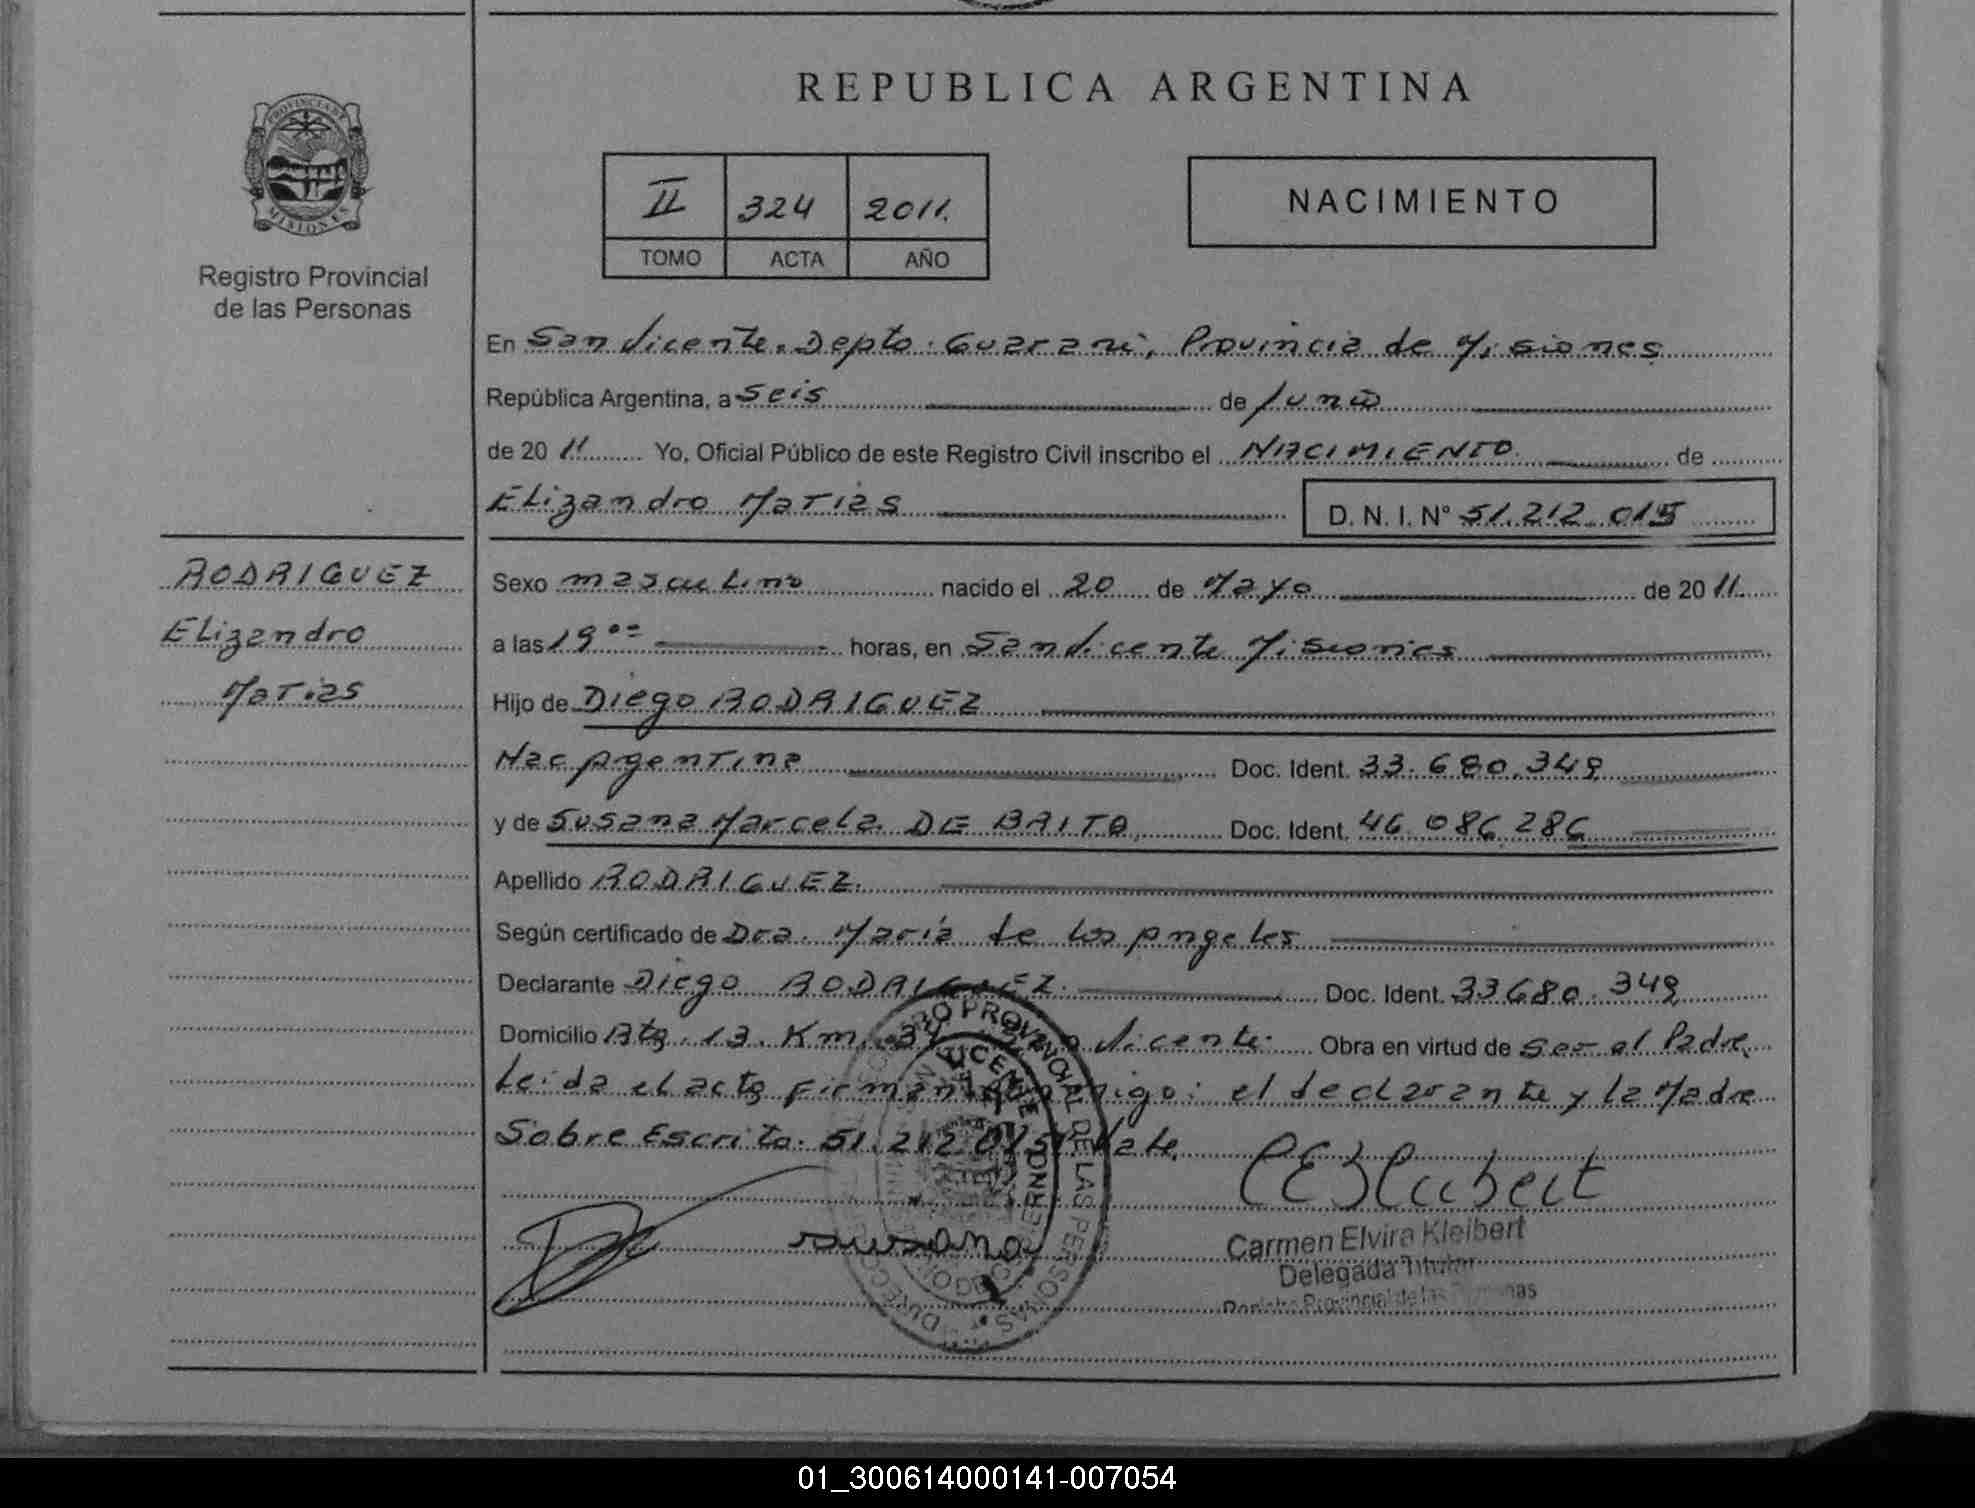 REPUBLICA ARGENTINA
PROVINCIA DE
MISIONES
Registro Provincial
de las Personas
II 324 2011.
TOMO ACTA AÑO
NACIMIENTO
En San Vicente. Depto. Guarani, Provincia de Misiones
República Argentina, a seis de Junio
de 20 11 Yo, Oficial Público de este Registro Civil inscribo el NACIMIENTO. de
Elizandro Matias D. N. I. N° 51.212.015
RODRIGUEZ
Elizandro
Matias
Sexo masculino nacido el 20 de Mayo de 20 11.
a las 19 00 horas, en San Vicente Misiones
Hijo de Diego RODRIGUEZ
Nac Argentina Doc. Ident. 33.680.349
y de Susana Marcela DE BRITO Doc. Ident. 46.086.286
Apellido RODRIGUEZ.
Según certificado de Dra. María de los Angeles
Declarante Diego RODRIGUEZ. Doc. Ident. 33680.349
Domicilio Rta. 13. Km. Vicente. Obra en virtud de Ser el Padre.
Leida el acta firman conmigo: el declarante y la Madre
Sobre Escrito. 51.212.015 Vale.
susana
CEKleibert
Carmen Elvira Kleibert
Delegada Titular
Registro Provincial de las Personas
01_300614000141-007054